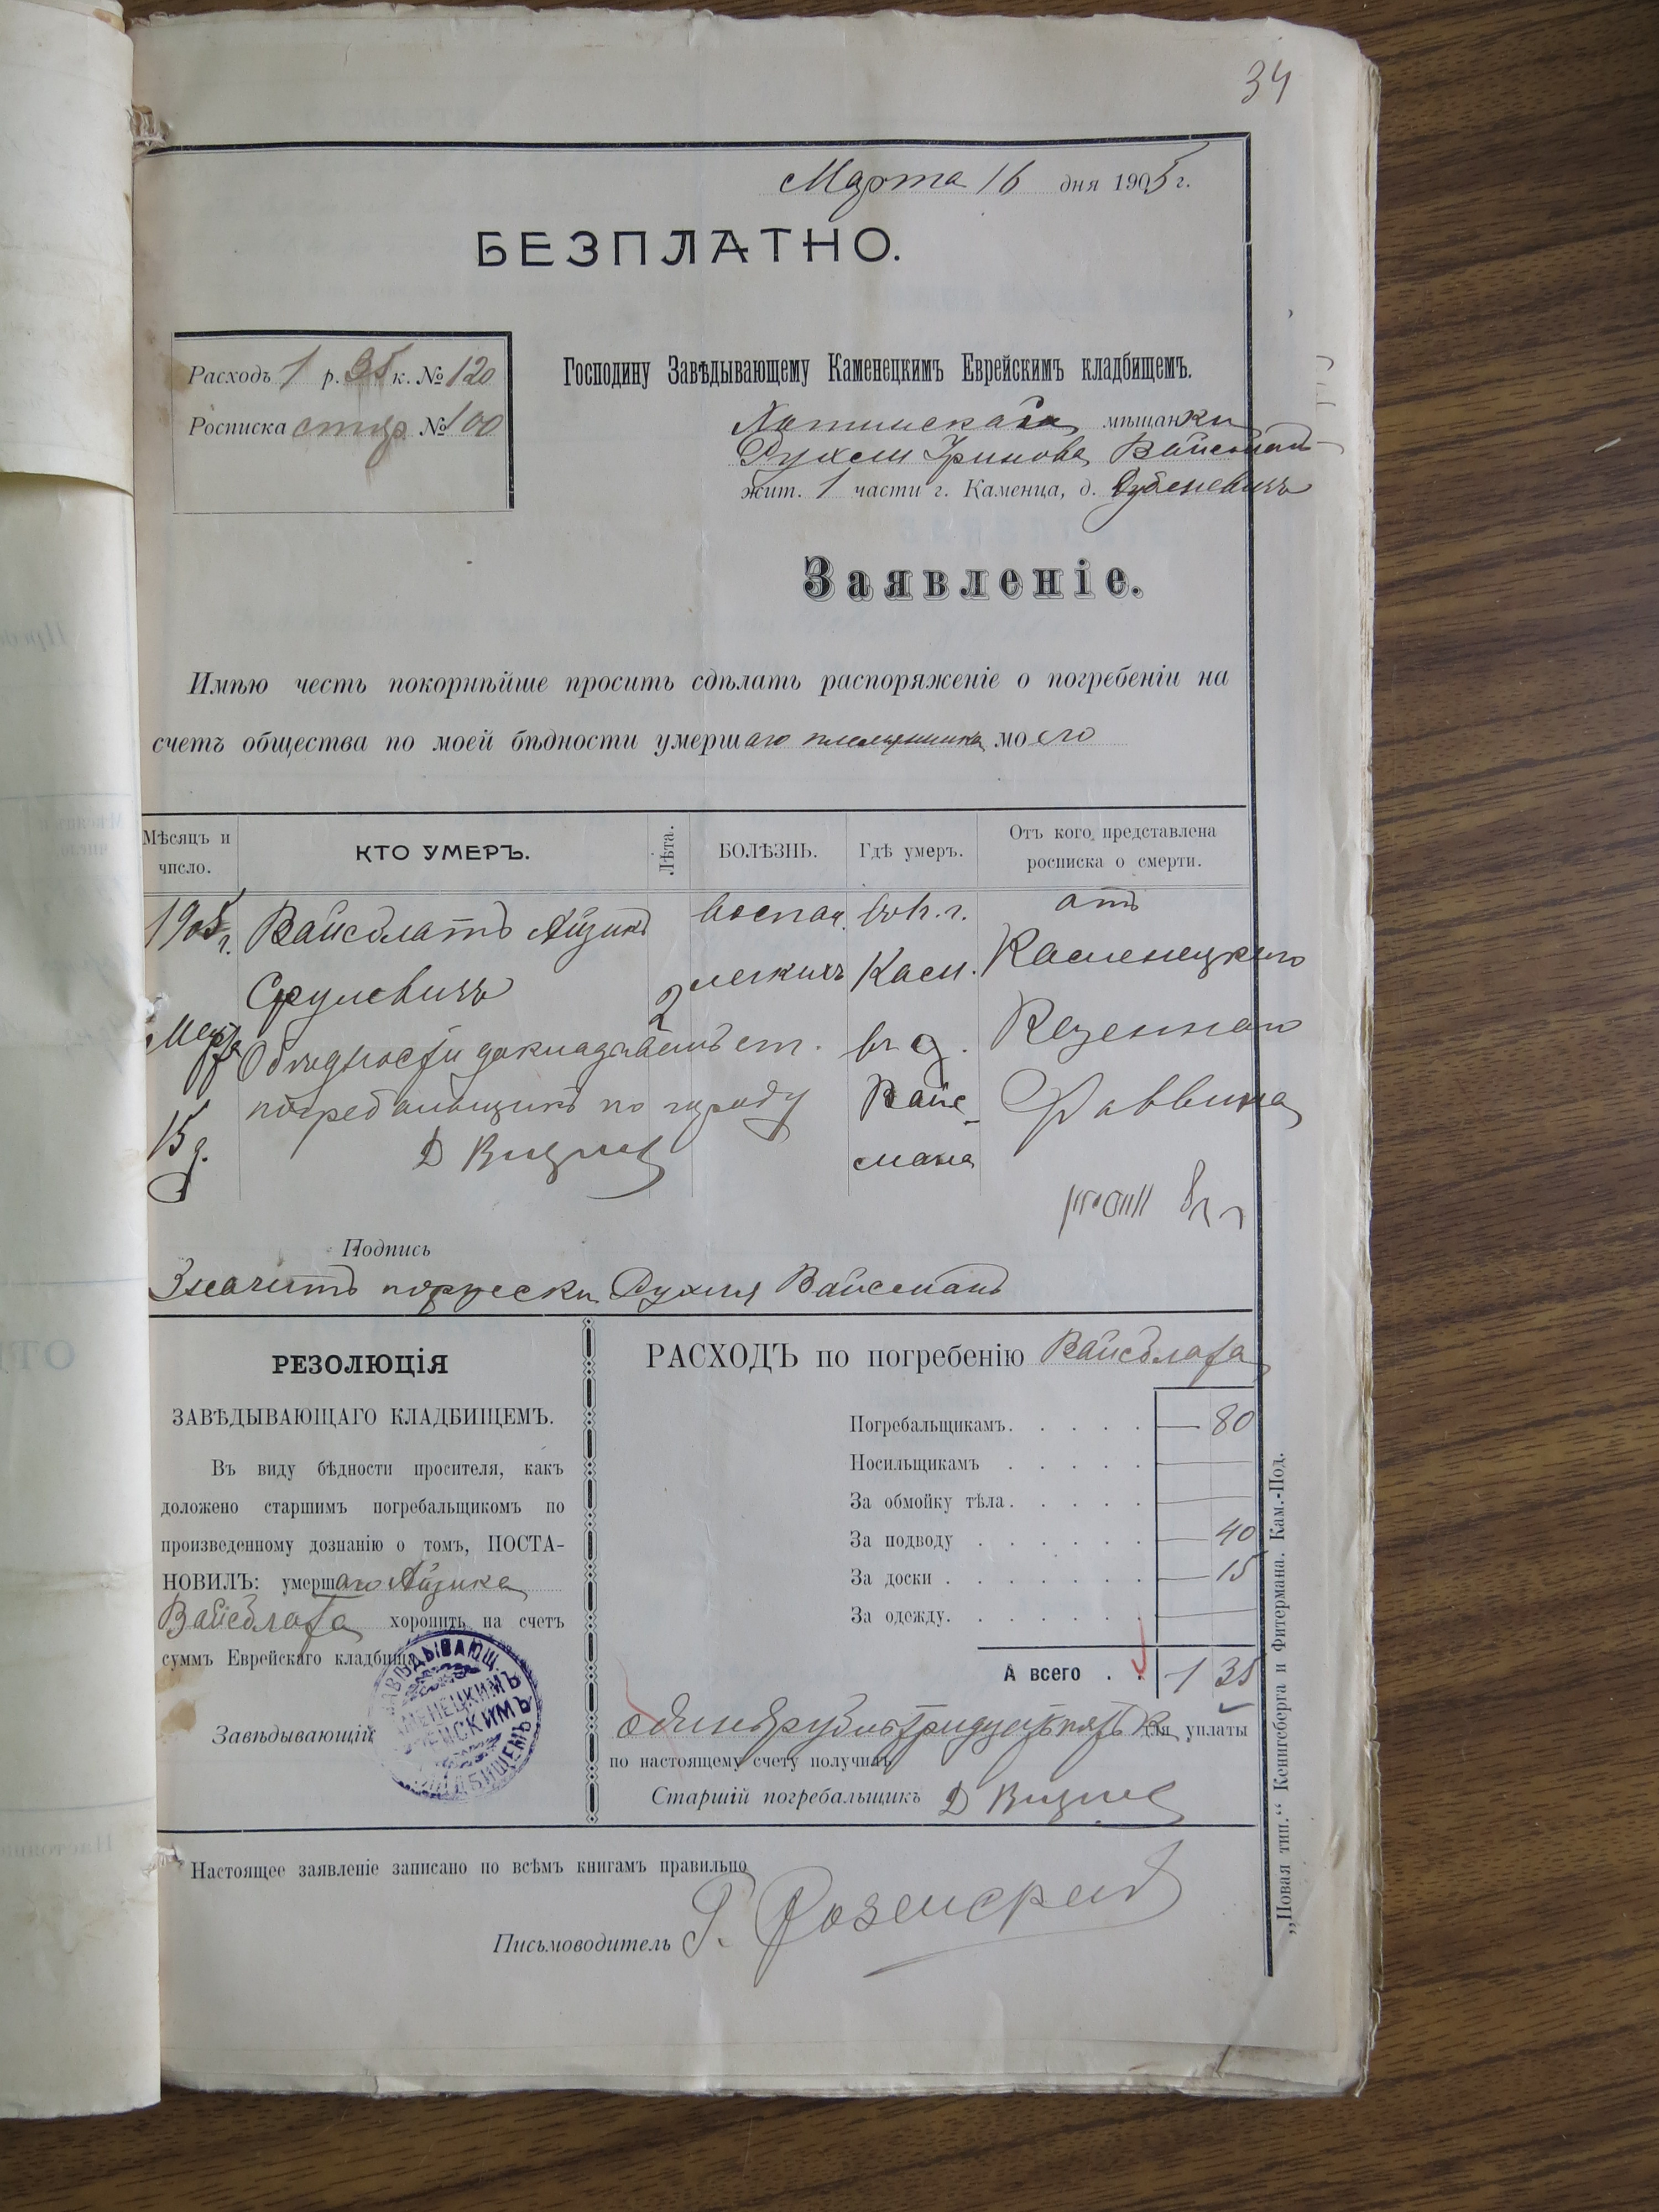 34
Марта 16 дня 1905 г.
БЕЗПЛАТНО.
Расходъ 1 р. 35 к. № 120
Росписка № 100
Господину Завѣдывающему Каменецкимъ Еврейскимъ кладбищемъ.
мѣщанки
Рухли Вайсманъ
жит. 1 части г. Каменца, д.
Заявленіе.
Имѣю честь покорнѣйше просить сдѣлать распоряженіе о погребеніи на
счетъ общества по моей бѣдности умершаго племянника моего
Мѣсяцъ и число.
КТО УМЕРЪ.
Лѣта.
БОЛѢЗНЬ.
Гдѣ умеръ.
Отъ кого представлена росписка о смерти.
1905 г. Марта 15 д.
Вайсблатъ Айзикъ
Срулевичъ
2
воспал.
легкихъ
въ г.
Кам.
въ д.
Вайс-
мана
отъ
Каменецкаго
Казеннаго
Раввина
О бѣдности докладываетъ ст.
погребальщикъ по городу
Подпись
Значитъ Рухля Вайсманъ
РЕЗОЛЮЦІЯ
ЗАВѢДЫВАЮЩАГО КЛАДБИЩЕМЪ.
Въ виду бѣдности просителя, какъ
доложено старшимъ погребальщикомъ по
произведенному дознанію о томъ, ПОСТА-
НОВИЛЪ: умершаго Айзика
Вайсблата хоронить на счетъ
суммъ Еврейскаго кладбища
Завѣдывающій
ЗАВѢДЫВАЮЩ. КАМЕНЕЦКИМЪ ЕВРЕЙСКИМЪ КЛАДБИЩЕМЪ
РАСХОДЪ по погребенію Вайсблата
Погребальщикамъ. . . . . — 80
Носильщикамъ . . . . . —
За обмойку тѣла. . . . . —
За подводу . . . . . . — 40
За доски . . . . . . . — 15
За одежду. . . . . . . —
А всего . . 1 35
одинъ рубль тридцать пять к. уплаты
по настоящему счету получилъ
Старшій погребальщикъ
Настоящее заявленіе записано по всѣмъ книгамъ правильно
Письмоводитель
„Новая тип.“ Кенигсберга и Фитермана. Кам.-Под.